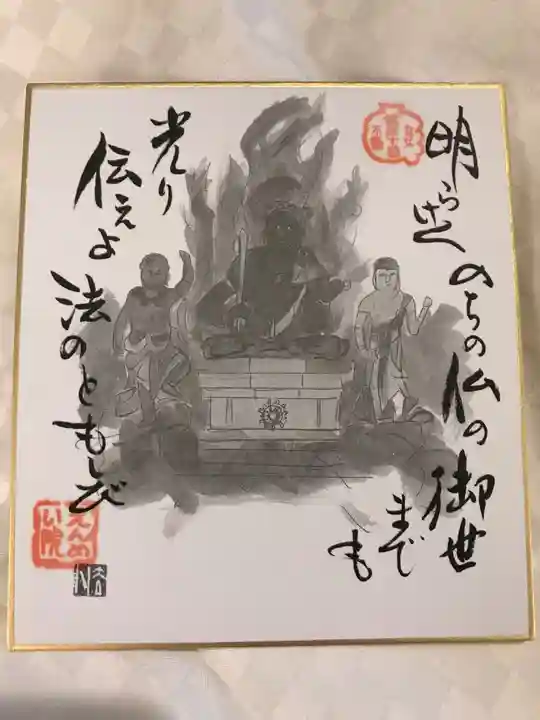 明らけく
のちの仏の御世
までも
光り
伝えよ
法のともしび
えんめ
い院